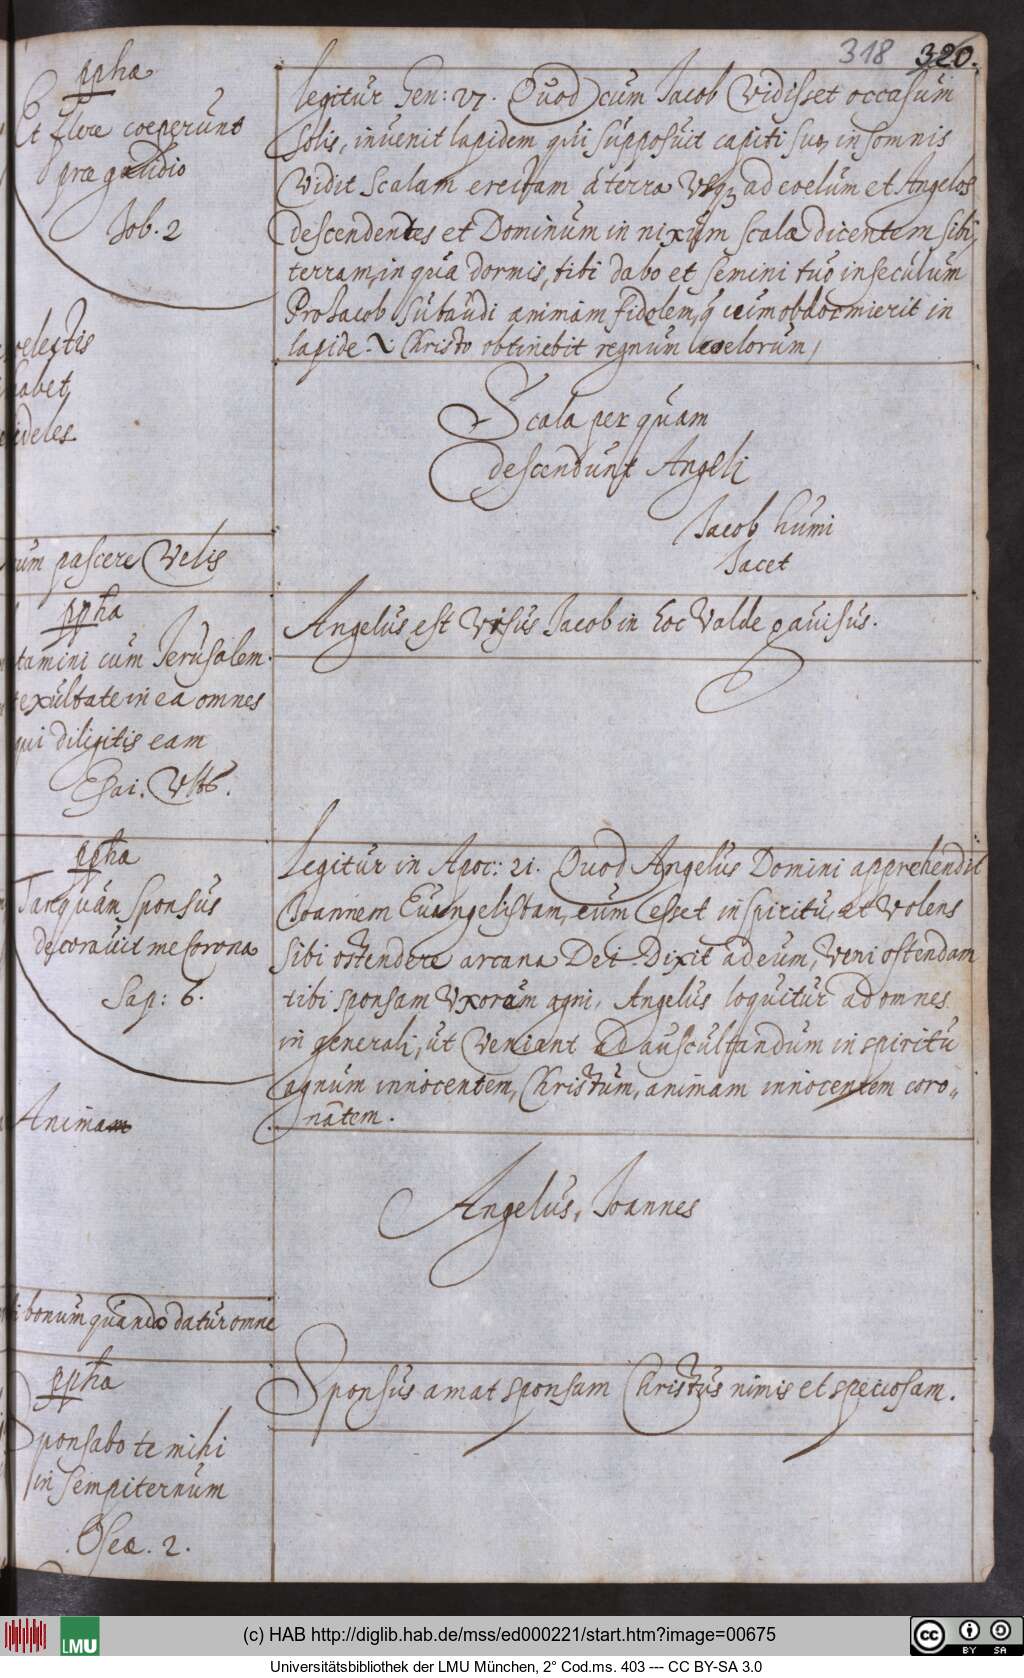 318 320.
ppha
Et flere coeperunt
præ gaudio
Tob. 2
coelestis
habet
fideles
cum pascere Velis
ppha
Laetamini cum Jerusalem
et exultate in ea omnes
qui diligitis eam
Esai. Vlt6.
ppha
Tanquam sponsus
decoravit me Corona
Sap: 6.
Animam
bonum quando datur omne
ppha
Sponsabo te mihi
in sempiternum
Oseæ. 2.
Legitur Gen: 27. Quod cum Jacob Vidisset occasum
solis, invenit lapidem qui supposuit capiti suo, in somnis
Vidit Scalam erectam a terra Vsqꝫ ad coelum et Angelos
descendentes et Dominum in nixum scalæ dicentem sibi,
terram, in qua dormis, tibi dabo et semini tuo in seculum
Pro Jacob Subaudi animam fidelem, q̄ cum obdormierit in
lapide .i. Christo obtinebit regnum coelorum,
Scala per quam
descendunt Angeli
Jacob humi
Jacet
Angelus est Visus Jacob in hoc Valde gavisus.
Legitur in Apoc: 21. Quod Angelus Domini apprehendit
Joannem Euangelistam, cum esset in spiritu, et Volens
Sibi ostendere arcana Dei Dixit ad eum, Veni ostendam
tibi sponsam Vxorem agni, Angelus loquitur ad omnes
in generali, ut Veniant ad auscultandum in spiritu
agnum innocentem, Christum, animam innocentem coro„
natem.
Angelus, Joannes
Sponsus amat sponsam Christus nimis et speciosam.
LMU
(c) HAB http://diglib.hab.de/mss/ed000221/start.htm?image=00675
Universitätsbibliothek der LMU München, 2° Cod.ms. 403 --- CC BY-SA 3.0
cc BY SA